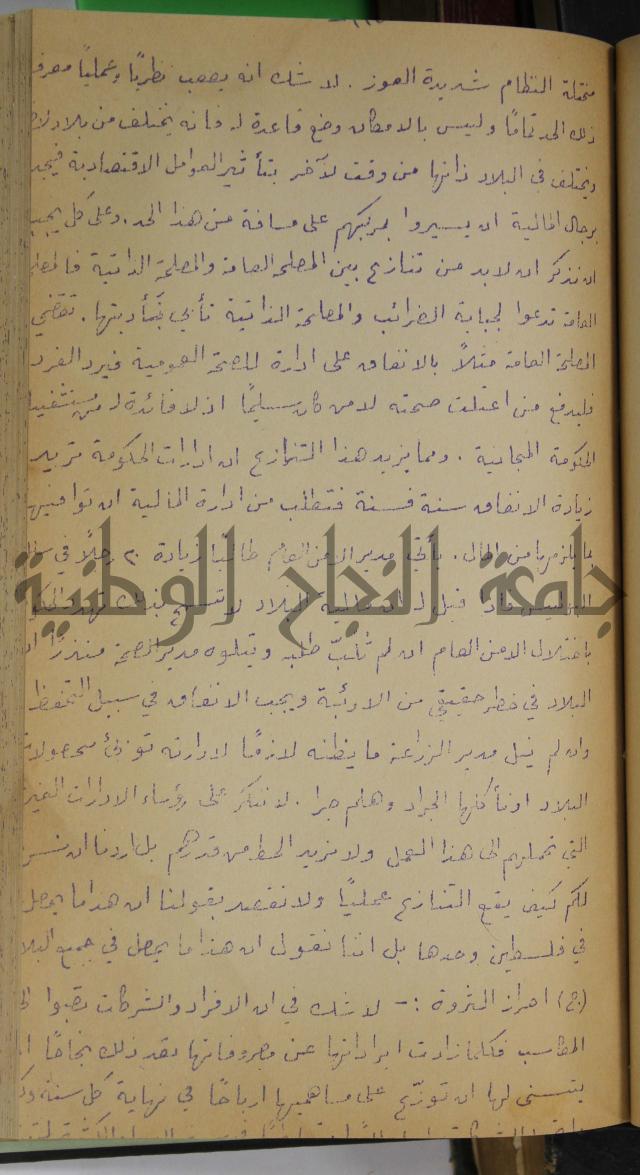 مختلة النظام شديدة العوز . لا شك انه يصعب نظريًا وعمليًا معرفة
ذلك الحد تمامًا وليس بالامكان وضع قاعدة له فانه يختلف من بلاد
ويختلف في البلاد ذاتها من وقت لآخر بتأثير العوامل الاقتصادية
برجال المالية ان يسيروا بمركبهم على مسافة من هذا الحد . وعلى كل يجب
ان نذكر ان لا بد من تنازع بين المصلحة العامة والمصلحة الذاتية
العامة تدعوا لجباية الضرائب والمصلحة الذاتية تأبى تأديتها . تقضي
المصلحة العامة مثلاً بالانفاق على ادارة للصحة العمومية فيرد الفرد
فليدفع من اعتلت صحته لا من كان سليمًا اذ لا فائدة له من
الحكومة المجانية . ومما يزيد هذا التنازع ان ادارات الحكومة تريد
زيادة الانفاق سنة فسنة فتطلب من ادارة المالية ان توافيها
بما يلزمها من المال . يأتي مدير الامن العام طالبًا زيادة ٢٠ رجلًا في
البوليس فاذا قيل له ان مالية البلاد لا تسمح بذلك
باختلال الامن العام ان لم تُلَبّ طلبه ويتلوه مدير الصحة منذرًا
البلاد في خطر حقيقي من الاوبئة ويجب الانفاق في سبيل التحفظ
وان لم ينل مدير الزراعة ما يظنه لازمًا لادارته
البلاد او تأكلها الجراد وهلم جرا . لا ننكر على رؤساء الادارات الغيرة
التي تحملهم الى هذا العمل ولا نريد الحط من قدرهم بل اردنا ان
لكم كيف يقع التنازع عمليًا ولا نقصد بقولنا ان هذا ما يحصل
في فلسطين وحدها بل اننا نقول ان هذا ما يحصل في جميع
(ج) احراز الثروة :- لا شك في ان الافراد والشركات تصبوا
المكاسب فكلما زادت ايراداتها عن مصروفاتها يعد ذلك نجاحًا
يتسنى لها ان توزّع على مساهميها ارباحًا في نهاية كل سنة
جامعة النجاح الوطنية